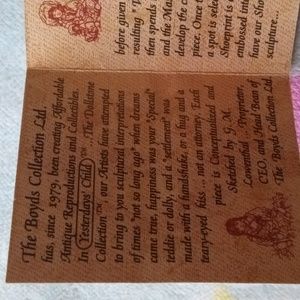 The Boyds Collection Ltd.
has, since 1979, been creating Affordable
Antique Reproductions and Collectibles.
In Yesterdays' Child ... The Dollstone
Collection™, our Artists have attempted
to bring to you sculptural interpretations
of times "not so long ago" when dreams
came true, happiness was your "Special"
teddie or dolly, and a "settlement" was
made with a handshake, or a hug and a
teary-eyed kiss... not an attorney. Each
piece is Conceptualized and
Sketched by G.M.
Lowenthal... Proprietor,
CEO, and Head Bean of
The Boyds Collection Ltd.
before given
resulting "
then spends
and the Ma
develop the c
piece. Once t
a spot is selec
Shoeprint is p
embossed into
have our Sho
sculpture...